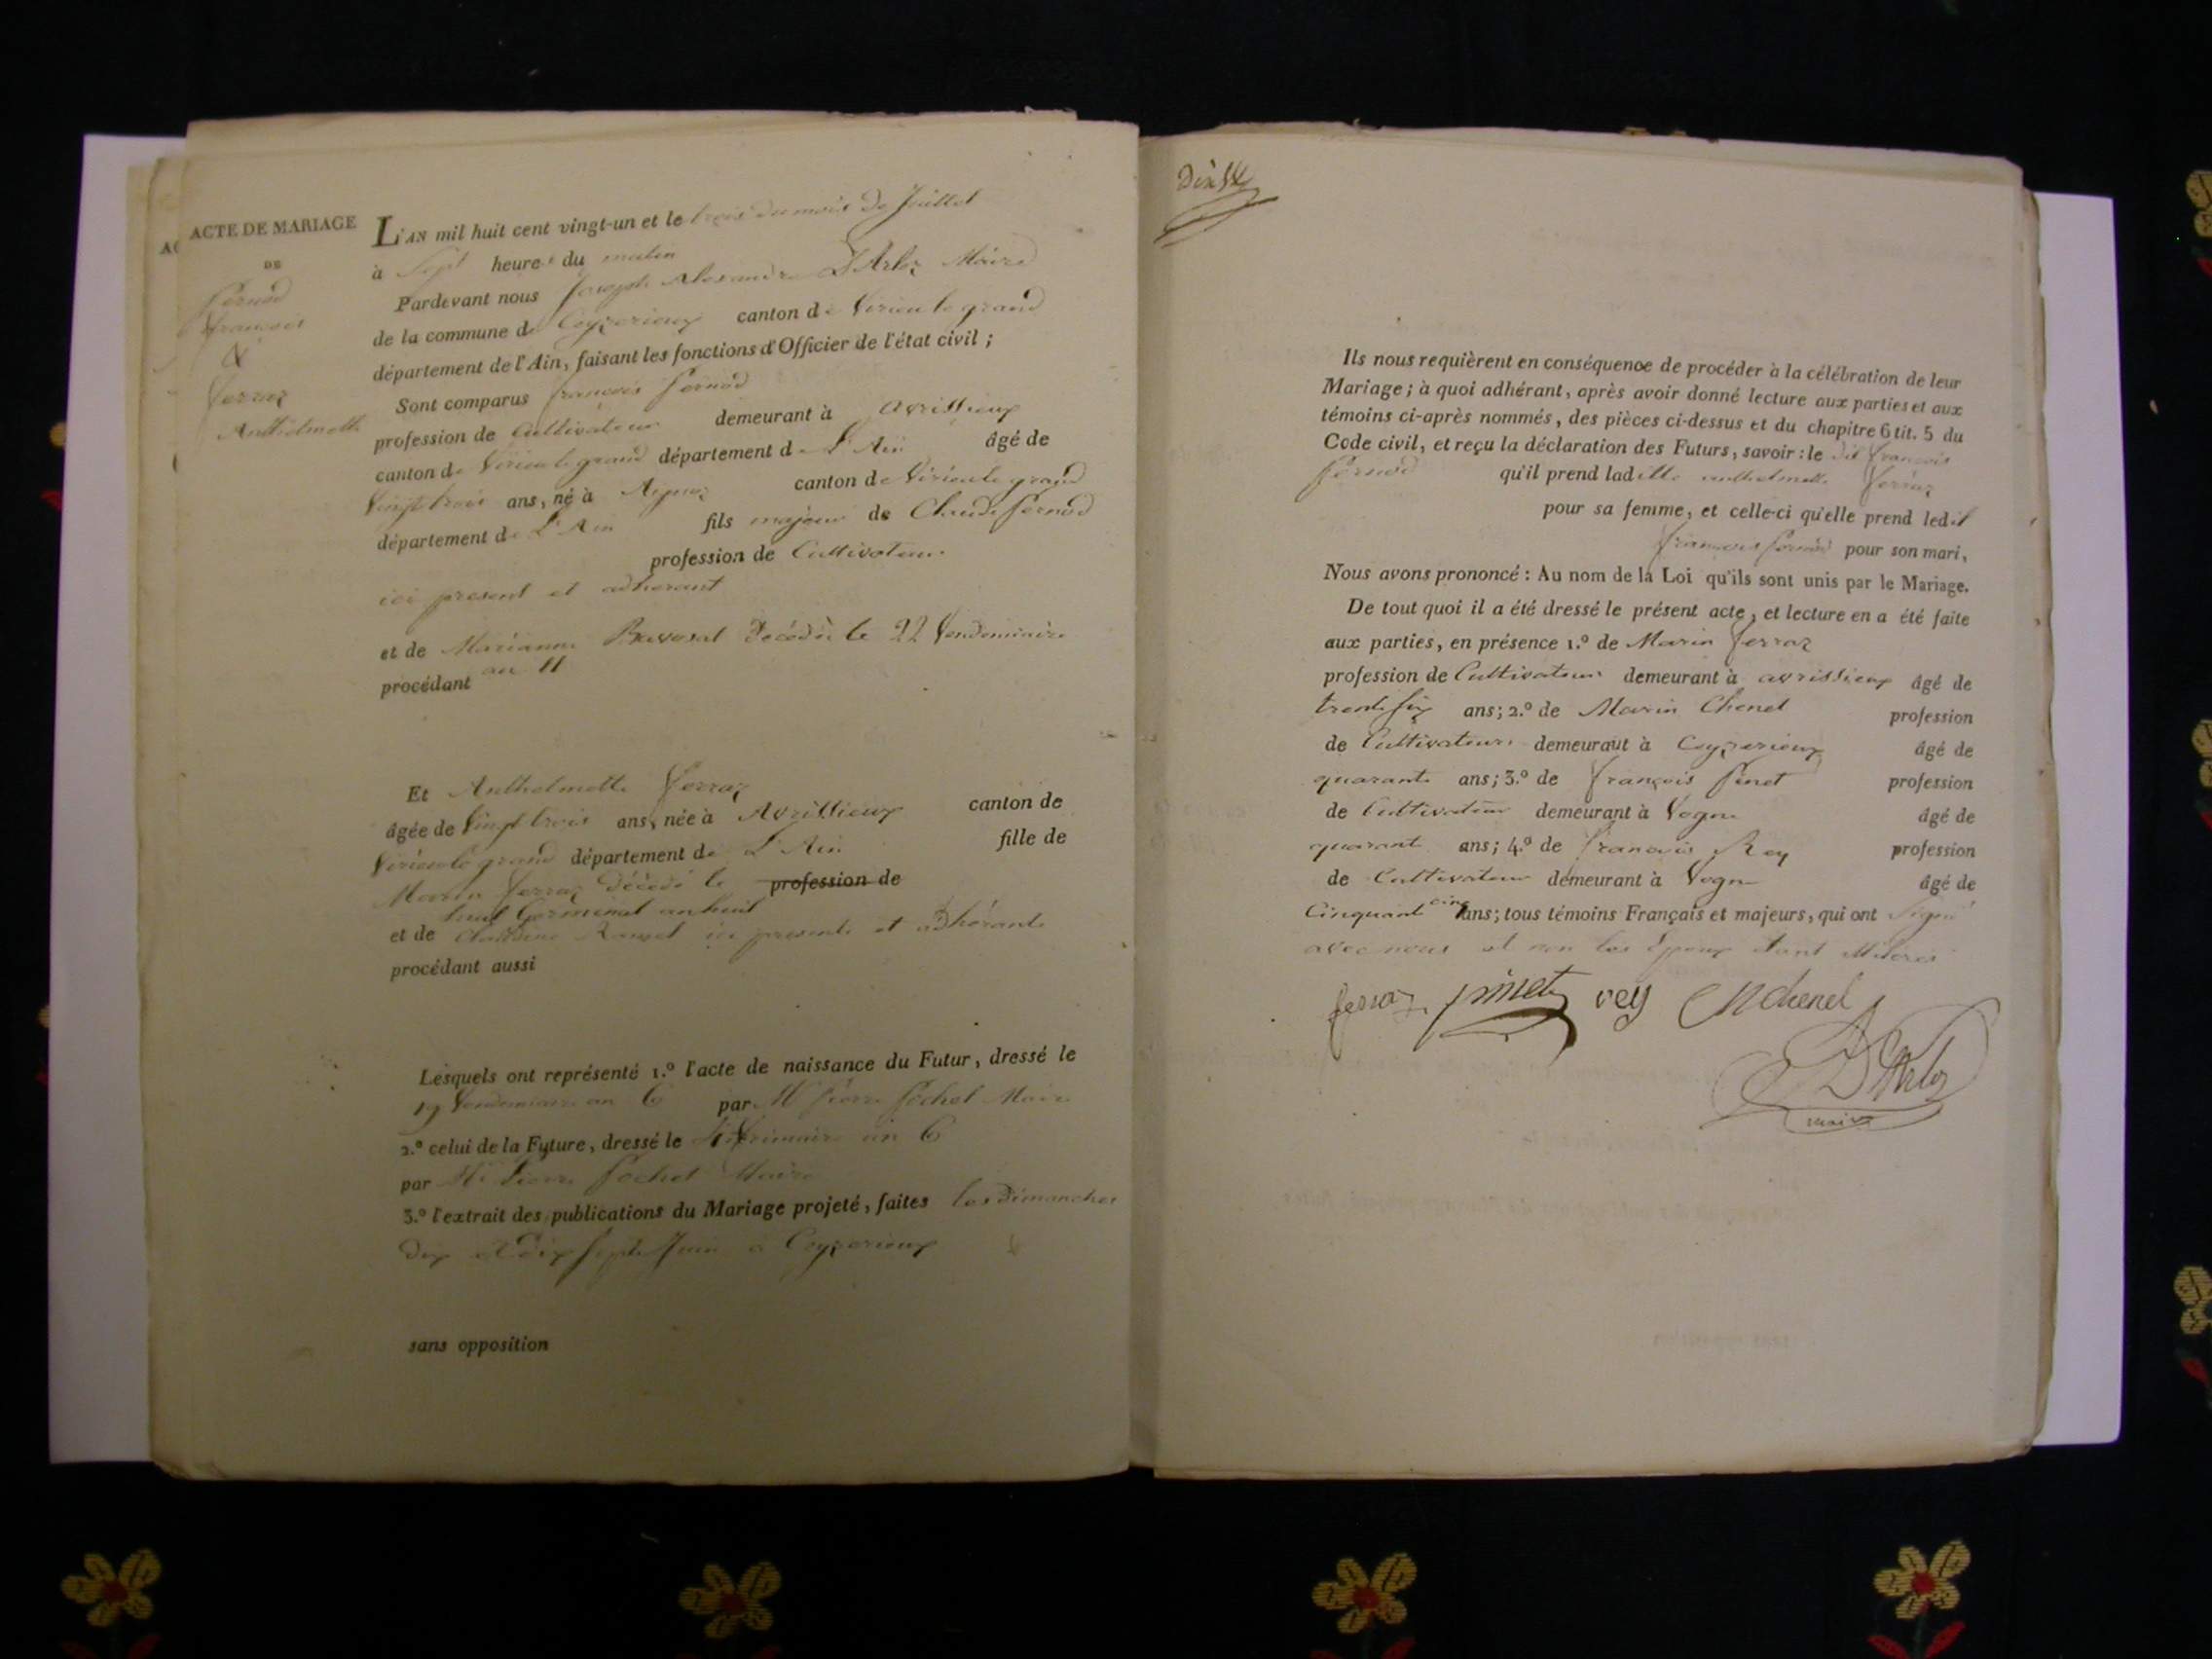 ACTE DE MARIAGE
DE
Pernod
françois
&
ferraz
Anthelmette
L'AN mil huit cent vingt-un et le trois du mois de Juillet
à Sept heures du matin
Pardevant nous Joseph Alexandre D'Arloz Maire
de la commune de Ceyzerieux canton de Virieu le grand
département de l'Ain, faisant les fonctions d'Officier de l'état civil ;
Sont comparus françois Pernod
profession de Cultivateur demeurant à avrissieux
canton de Virieu le grand département de L'Ain âgé de
Vingt trois ans, né à canton de Virieu le grand
département de L'Ain fils majeur de Claude Pernod
profession de Cultivateur
ici present et adherant
et de Marianne décédée le 22 Vendemiaire
an 11
procédant
Et Anthelmette ferraz
âgée de Vingt trois ans, née à Avrissieux canton de
Virieu le grand département de L'Ain fille de
Marin ferraz décédé le profession de
huit Germinal an huit
et de Claudine ici presente et adhérante
procédant aussi
Lesquels ont représenté 1.º l'acte de naissance du Futur, dressé le
19 Vendemiaire an 6 par Mr Pierre Pochet Maire
2.º celui de la Future, dressé le frimaire an 6
par Mr Pierre Pochet Maire
3.º l'extrait des publications du Mariage projeté, faites les dimanches
dix et dix sept Juin à Ceyzerieux
sans opposition
Ils nous requièrent en conséquence de procéder à la célébration de leur
Mariage ; à quoi adhérant, après avoir donné lecture aux parties et aux
témoins ci-après nommés, des pièces ci-dessus et du chapitre 6 tit. 5 du
Code civil, et reçu la déclaration des Futurs, savoir : le dit françois
Pernod qu'il prend ladite anthelmette ferraz
pour sa femme, et celle-ci qu'elle prend ledit
françois Pernod pour son mari,
Nous avons prononcé : Au nom de la Loi qu'ils sont unis par le Mariage.
De tout quoi il a été dressé le présent acte, et lecture en a été faite
aux parties, en présence 1.º de Marin ferraz
profession de Cultivateur demeurant à avrissieux âgé de
trente six ans ; 2.º de Marin Chenel profession
de Cultivateur demeurant à Ceyzerieux âgé de
quarante ans ; 3.º de françois Pinet profession
de Cultivateur demeurant à Vogne âgé de
quarant ans ; 4.º de françois Rey profession
de Cultivateur demeurant à Vogne âgé de
Cinquant cinq ans ; tous témoins Français et majeurs, qui ont Signé
avec nous et non les Epoux étant illiterés
ferraz pinet rey M chenel
D'Arloz
maire